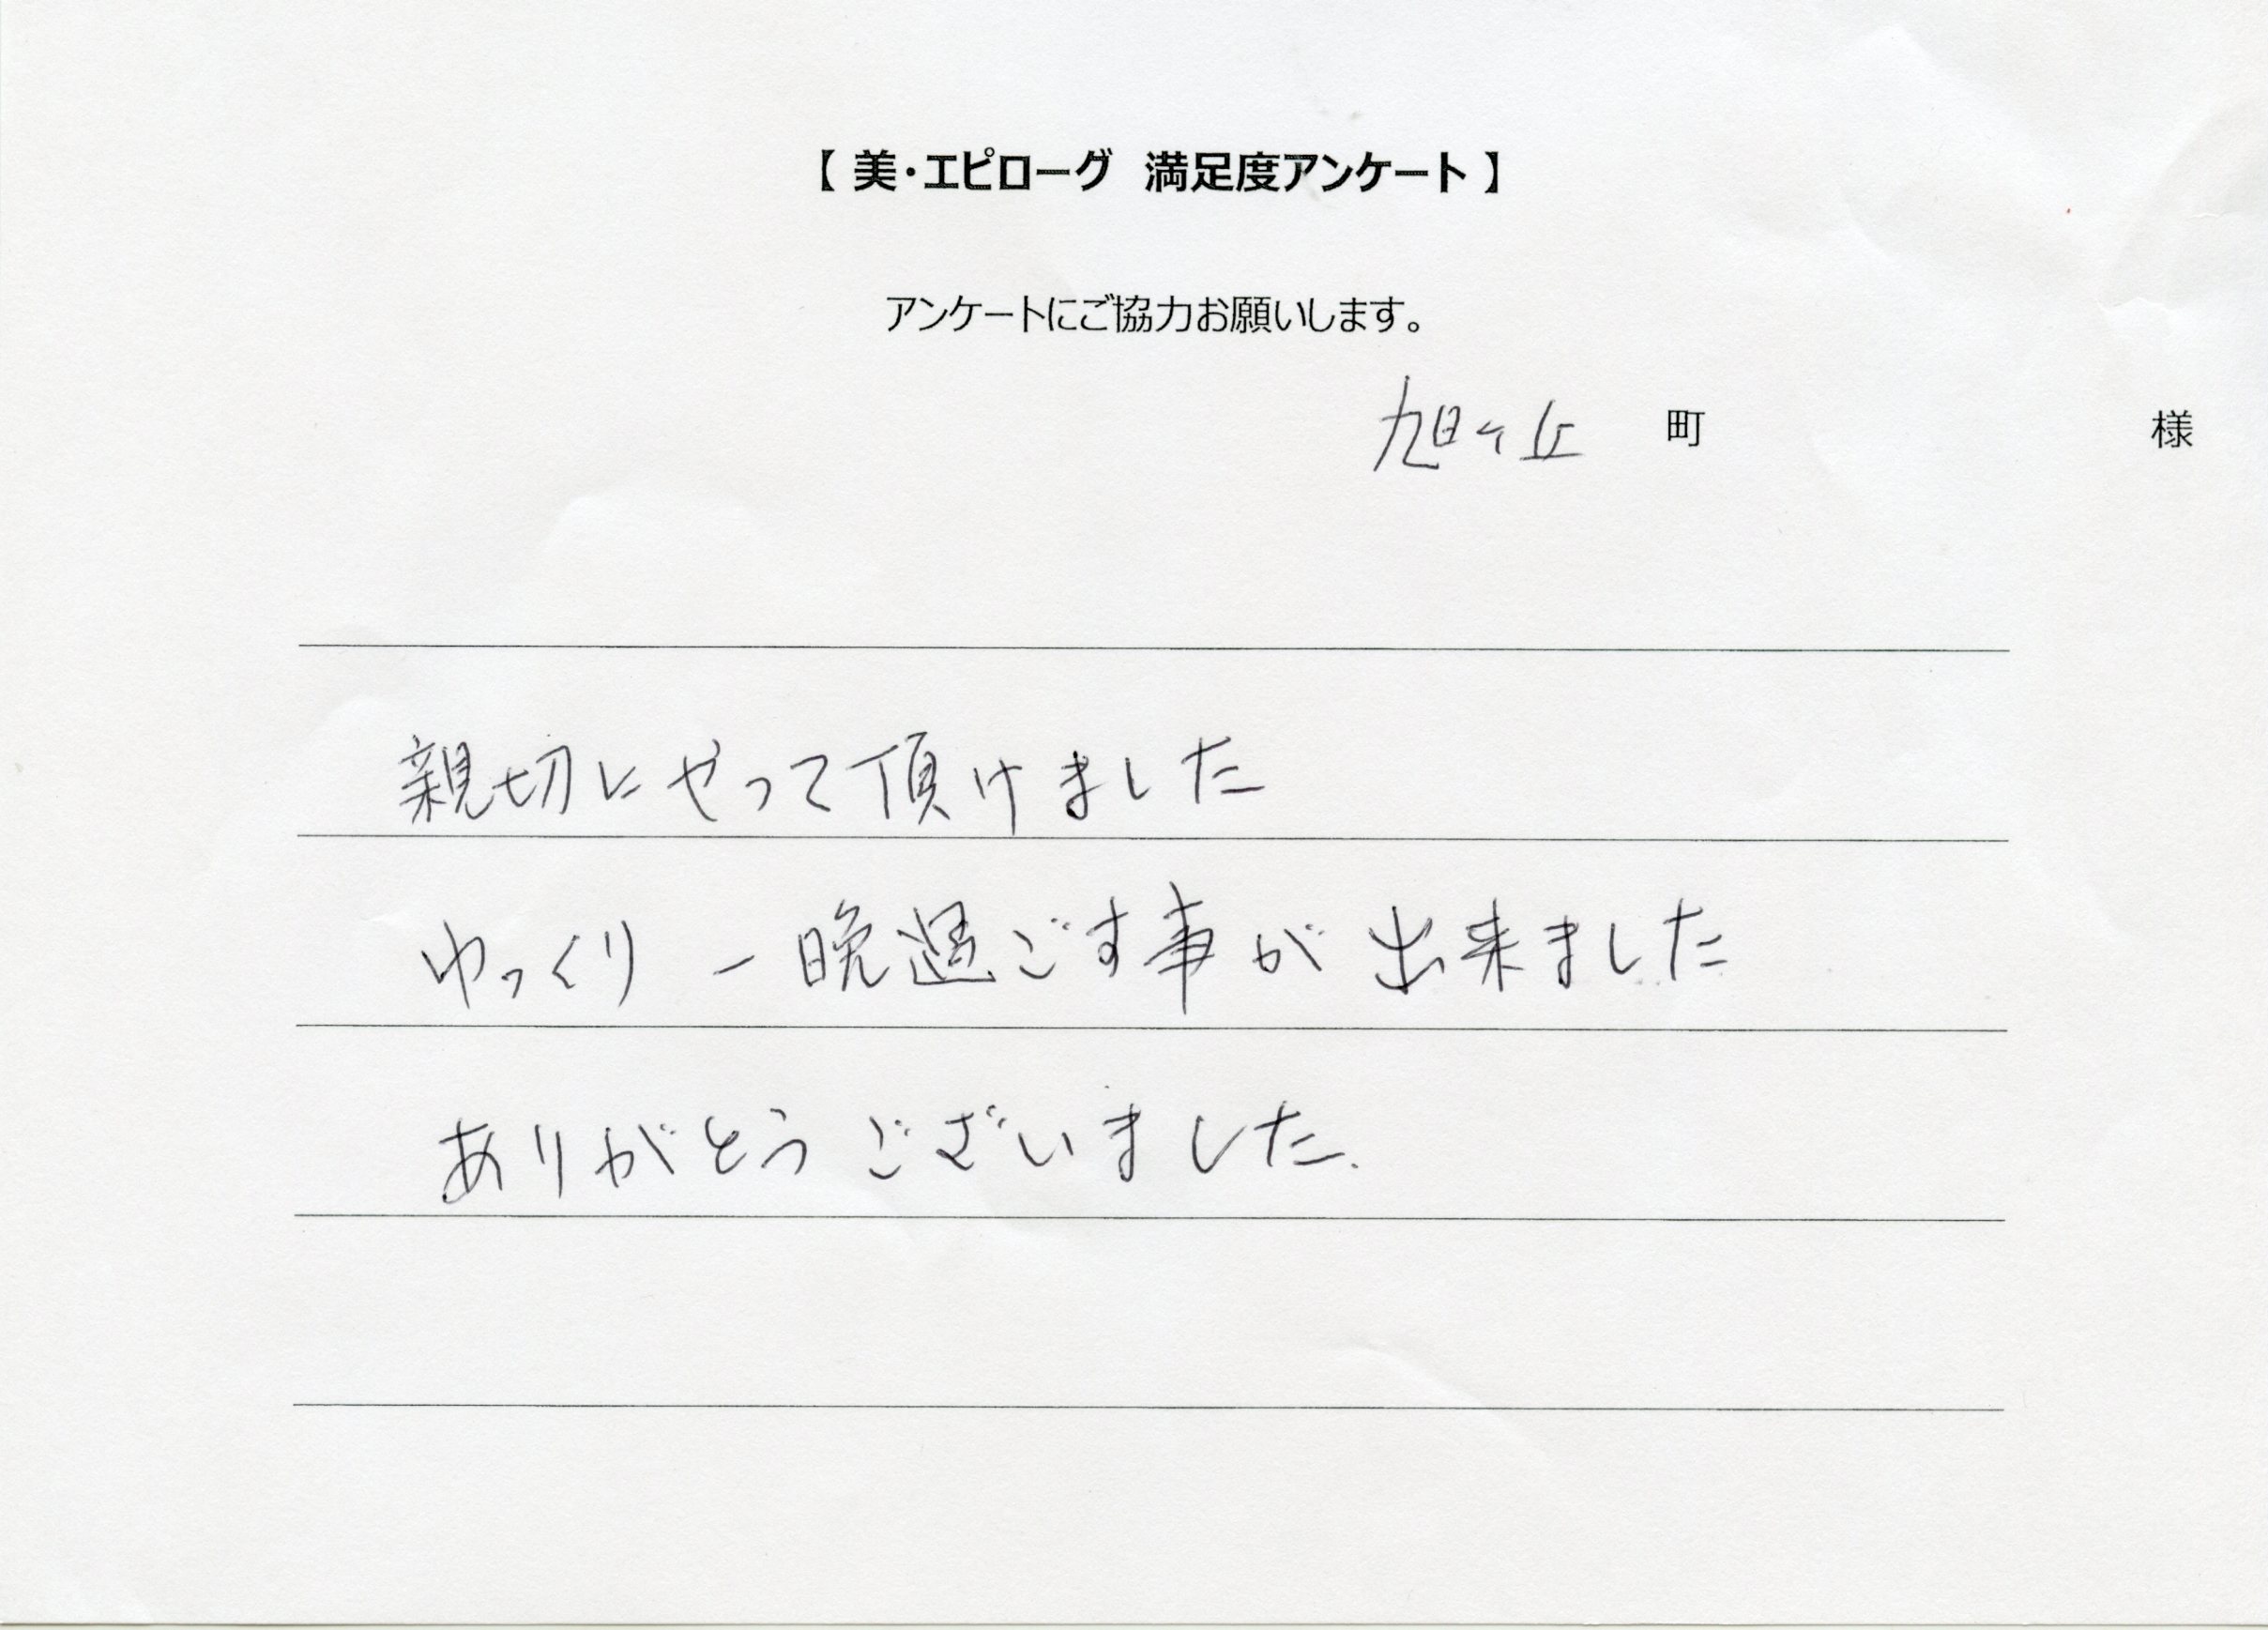 【 美・エピローグ 満足度アンケート 】
アンケートにご協力お願いします。
旭ケ丘 町 様
親切にやって頂けました
ゆっくり 一晩過ごす事が出来ました
ありがとうございました.